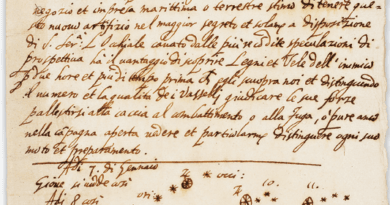 negozio et inpresa marittima o terrestre stimo di tenere que
sto nuovo artifizio nel maggior segreto et solam.te a dispositione
di S. Ser.tà L'Ochiale cavato dalle più recondite speculazioni di
prospettiva ha il vantaggio di scoprire Legni et Vele dell'inimico
p due hore et più di tempo prima ch'egli scuopra noi et distinguendo
il numero et la qualità de i Vasselli giudicare le sue forze
pallestirsi alla caccia al combattimento o alla fuga, o pure anco
nella capagna aperta vedere et particularm.te distinguere ogni suo
moto et preparamento.
Adi 7. di Gennaio
Giove si vede così
occi:
Adi 8 così
ori:
10.
11.